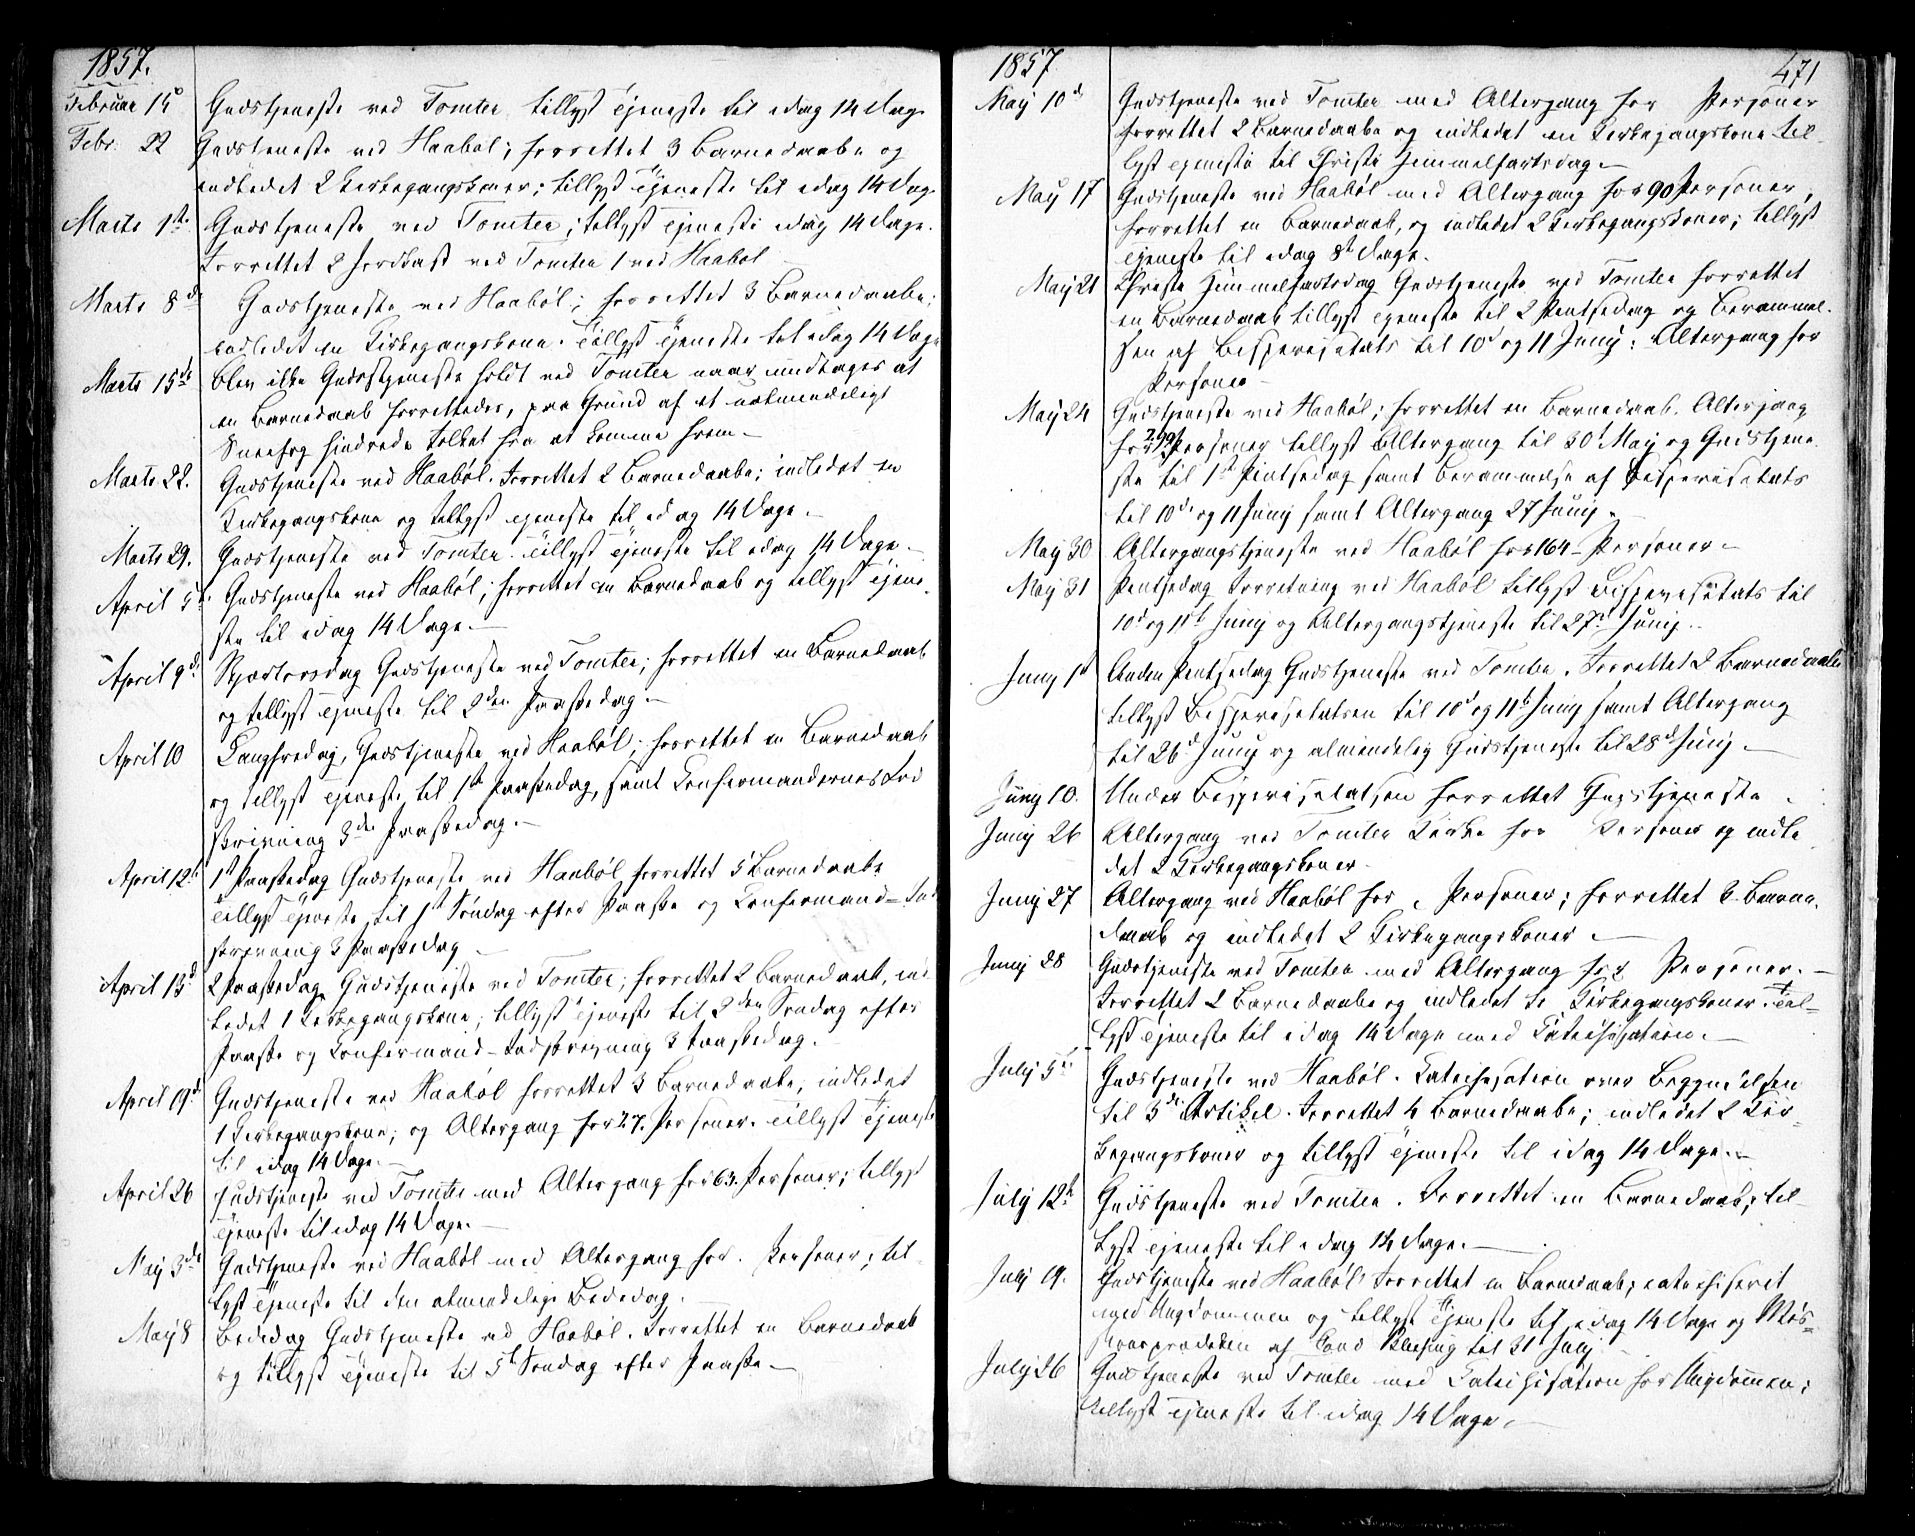 1857.
Februar 15d Gudstjeneste ved Tomter, tillyst Tjeneste til idag 14 Dage
Febr. 22 Gudstjeneste ved Haabøl; forrettet 3 Barnedaabe og
indledet 2 Kirkegangskoner; tillyst Tjeneste til idag 14 Dage
Marts 1ste Gudstjeneste ved Tomter; tillyst Tjeneste idag 14 Dage.
Forrettet 2 Jordkast ved Tomter 1 ved Haabøl
Marts 8d Gudstjeneste ved Haabøl; forrettet 3 Barnedaabe;
indledet en Kirkegangskone. Tillyst Tjeneste til idag 14 Dage
Marts 15de blev ikke Gudstjeneste holdt ved Tomter naar undtages at
en Barnedaab forrettedes, paa Grund af et ualmindeligt
Sneefog hindrede Folket fra at komme frem.
Marts 22. Gudstjeneste ved Haabøl. Forrettet 2 Barnedaabe; indledet en
Kirkegangskone og tillyst Tjeneste til idag 14 Dage.
Marts 29. Gudstjeneste ved Tomter. Tillyst Tjeneste til idag 14 Dage.
April 5t Gudstjeneste ved Haabøl; forrettet en Barnedaab og tillyst Tjene-
ste til idag 14 Dage.
April 9d Skjærtorsdag Gudstjeneste ved Tomter; forrettet en Barnedaab
og tillyst Tjeneste til 2den Paaskedag.
April 10 Langfredag, Gudstjeneste ved Haabøl; forrettet en Barnedaab
og tillyst Tjeneste til 1st Paaskedag, samt Confirmandernes Ind
skrivning 3die Paaskedag.
April 12t 1st Paaskedag Gudstjeneste ved Haabøl forrettet 5 Barnedaabe
Tillyst Tjeneste til 1st Søndag efter Paaske og Confirmand-Ind
skrivning 3 Paaskedag
April 13d 2 Paaskedag Gudstjeneste ved Tomter; forrettet 2 Barnedaab, ind
ledet 1 Kirkegangskone; tillyst Tjeneste til 2den Søndag efter
Paaske og Confirmand-Indskrivning 3 Paaskedag.
April 19d Gudstjeneste ved Haabøl forrettet 3 Barnedaabe, indledet
1 Kirkegangskone; og Altergang for 27. Personer. Tillyst Tjeneste
til idag 14 Dage.
April 26 Gudstjeneste ved Tomter med Altergang for 63. Personer; tillyst
Tjeneste til idag 14 Dage.
May 3de Gudstjeneste ved Haabøl med Altergang for. Personer; til-
lyst Tjeneste til den almindelige Bededag.
May 8 Bededag Gudstjeneste ved Haabøl. Forrettet en Barnedaab
og tillyst Tjeneste til 5t Søndag efter Paaske.
1857
471
May 10d Gudstjeneste ved Tomter med Altergang for Personer
forrettet 2 Barnedaabe og indledet en Kirkegangskone til-
lyst Tjeneste til Christi Himmelfartsdag.
May 17 Gudstjeneste ved Haabøl med Altergang for 90 Personer,
forrettet en Barnedaab, og indledet 2 Kirkegangskoner; tillyst
Tjeneste til idag 8t Dage.
May 21 Christi Himmelfartsdag Gudstjeneste ved Tomter forrettet
en Barnedaab tillyst Tjeneste til 2 Pintsedag og Berammel-
sen af Bispevisitats til 10d og 11 Juny: Altergang for
Personer
May 24 Gudstjeneste ved Haabøl; forrettet en Barnedaab. Altergang
for Personer tillyst Altergang til 30t May og Gudstjene-
ste til 1st Pintsedag samt Berammelse af Bispevisitats
til 10d og 11 Juny samt Altergang 27 Juny.
May 30 Altergangstjeneste ved Haabøl for 164 Personer
May 31 Pintsedag Forretning ved Haabøl tillyst Bispevisitats til
10d og 11t Juny og Altergangstjeneste til 27d Juny.
Juny 1st Anden Pintsedag Gudstjeneste ved Tomter. Forrettet 2 Barnedaabe
tillyst Bispevisitatsen til 10d og 11t Juny samt Altergang
til 26d Juny og almindelig Gudstjeneste til 28d Juny.
Juny 10. Under Bispevisitatsen forrettet Gudstjeneste
Juny 26 Altergang ved Tomter Kirke for Personer og indle
det 2 Kirkegangskoner
Juny 27 Altergang ved Haabøl for Personer; forrettet 2 Barne-
daab og indledet 2 Kirkegangskoner.
Juny 28 Gudstjeneste ved Tomter med Altergang for Personer.
Forrettet 2 Barnedaabe og indledet to Kirkegangskoner. Til-
lyst Tjeneste til idag 14 Dage med Catechisation.
July 5t Gudstjeneste ved Haabøl. Catechisation over Begyndelsen
til 3de Artikel. Forrettet 4 Barnedaabe; indledet 2 Kir-
kegangskoner og tillyst Tjeneste til idag 14 Dage.
July 12t Gudstjeneste ved Tomter. Forrettet en Barnedaab; til-
lyst Tjeneste til idag 14 Dage.
July 19. Gudstjeneste ved Haabøl Forrettet en Barnedaab; catechiseret
med Ungdommen og tillyst Tjeneste til idag 14 Dage og
af Cand til 31 July
July 26 Gudstjeneste ved Tomter med Catechisation for Ungdommen;
tillyst Tjeneste til idag 14 Dage.